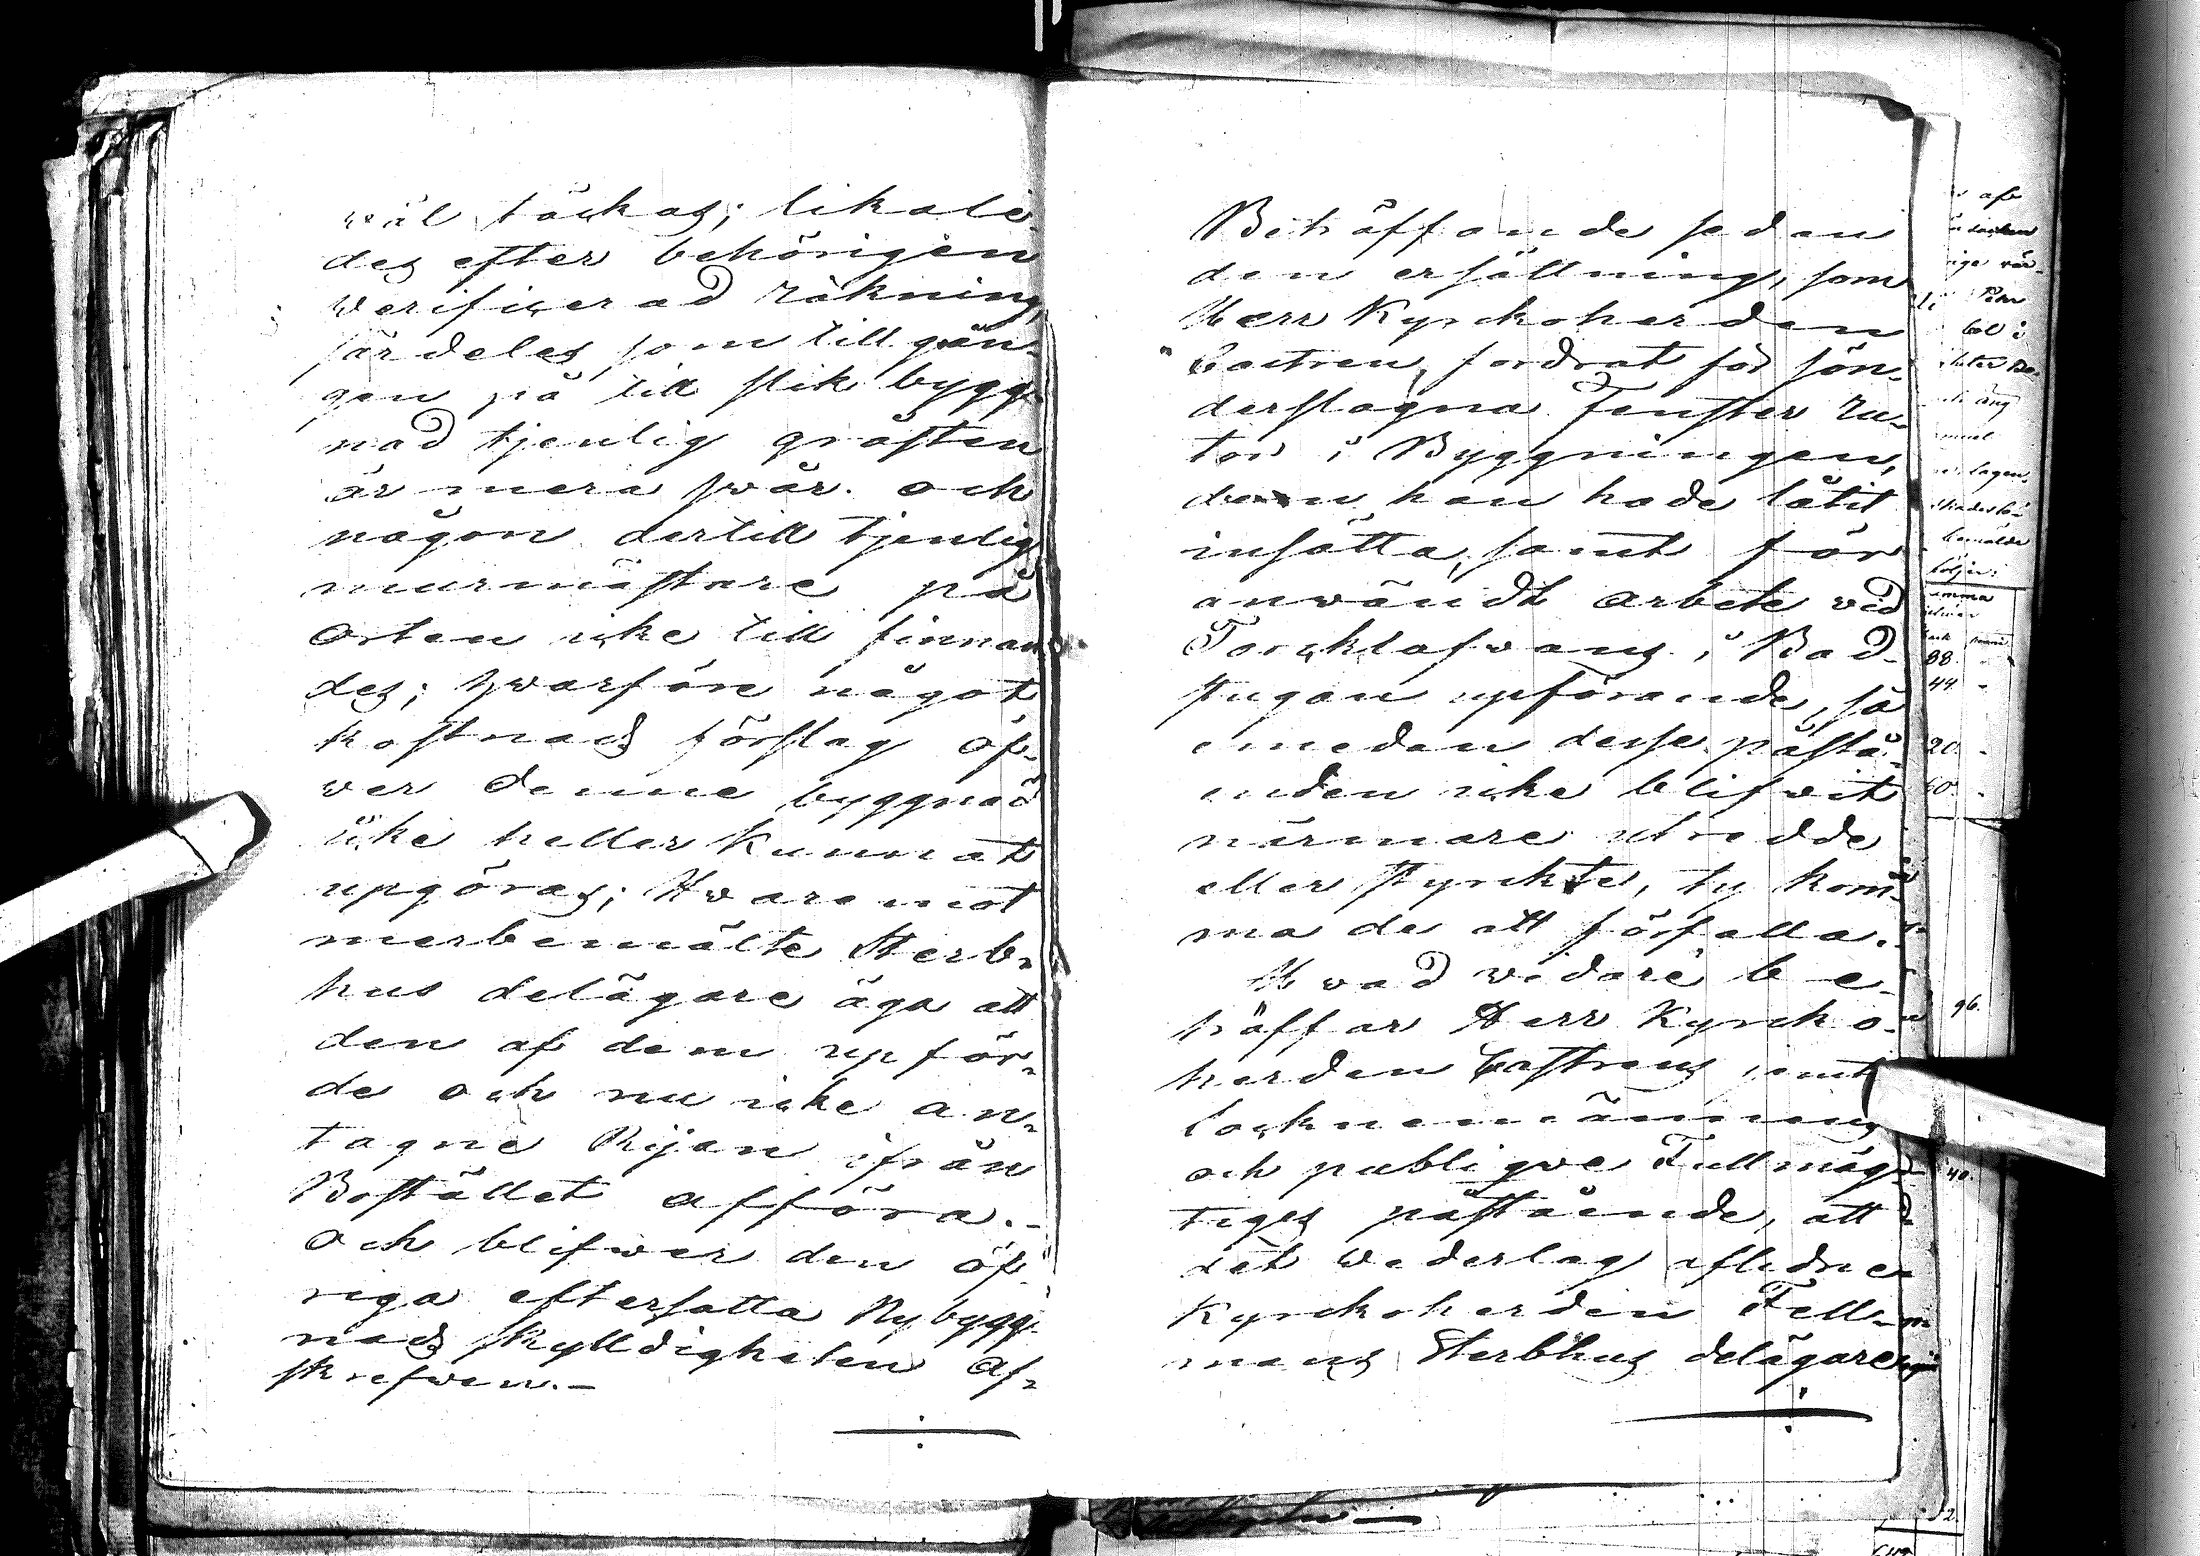 wäl täckas; likale
des efter behörigen
verificerad räkning,
särdeles som till gån-
gen på till slik bygg-
nad tjenlig gråsten
är mera swår och
någon dertill tjenlig
murmästare på
Orten icke till finnan
des; hwarföre något
kostnads förslag öf-
wer denne byggnad
icke heller kunnat
upgöras; Hwaremot
merbemälte Sterb-
hus delägare äga att
den af dem upför-
de och nu icke an-
tagne Rijan ifrån
Bostället afföra.-
Och blifwer den öf-
riga eftersatta Nybygg-
nads skylldigheten af-
skrefwen.-
Beträffande sedan
den ersättning, som
Herr Kyrckoherden
Castren fordrat för sön-
derslagna Fenster ru-
tor i Byggningen,
dem han hade låtit
insätta, samt för
anwändt arbete wid
Torcklafwans i Bad-
stugan upförande, så
emedan desse påstå-
enden icke blifwit
närmare utredde
eller styrckte, ty kom-
ma de att förfalla.
Hwad widare be-
träffar Herr Kyrcko-
herden Castrens samt
Socknemänning
och publiqve Fullmäg-
tiges påstående, att
det wederlag aflidne
Kyrckoherden Fell-
mans Sterbhus delägare
af
Petr
bol i
äng
lagen
bemälde
följer:
88.
44
20
60
96.
40.